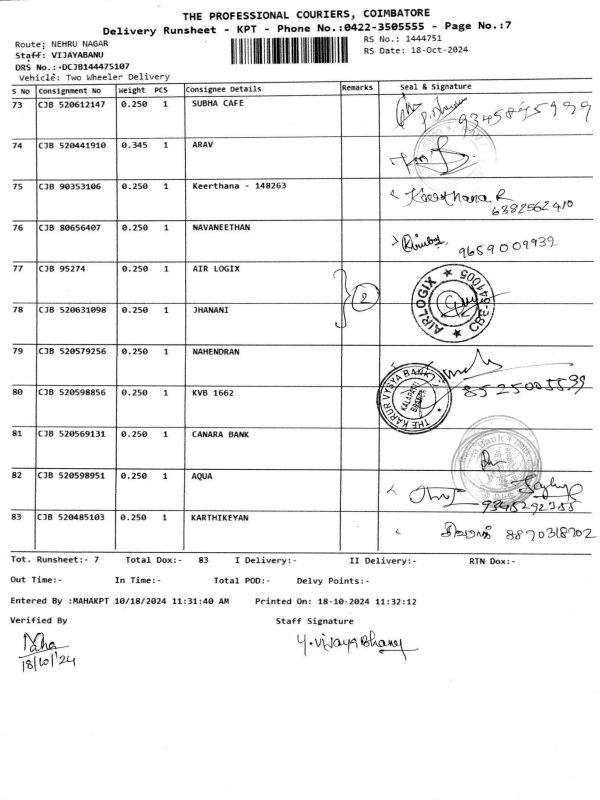 THE PROFESSIONAL COURIERS, COIMBATORE
Delivery Runsheet - KPT - Phone No.:0422-3505555 - Page No.:7
Route: NEHRU NAGAR
RS No.: 1444751
Staff: VIJAYABANU
RS Date: 18-Oct-2024
DRS No.:-DCJB144475107
Vehicle: Two Wheeler Delivery
S No Consignment No Weight PCS Consignee Details Remarks Seal & Signature
73 CJB 520612147 0.250 1 SUBHA CAFE
74 CJB 520441910 0.345 1 ARAV
75 CJB 90353106 0.250 1 Keerthana - 148263 Keerthana R
6382562410
76 CJB 80656407 0.250 1 NAVANEETHAN
9659009939
77 CJB 95274 0.250 1 AIR LOGIX
2
AIRLOGIX ★ CBE-641005 ★
78 CJB 520631098 0.250 1 JHANANI
79 CJB 520579256 0.250 1 NAHENDRAN
8525005599
80 CJB 520598856 0.250 1 KVB 1662
THE KARUR VYSYA BANK
BRANCH
81 CJB 520569131 0.250 1 CANARA BANK
82 CJB 520598951 0.250 1 AQUA
9345292355
83 CJB 520485103 0.250 1 KARTHIKEYAN 8870318702
Tot. Runsheet:- 7 Total Dox:- 83 I Delivery:- II Delivery:- RTN Dox:-
Out Time:- In Time:- Total POD:- Delvy Points:-
Entered By :MAHAKPT 10/18/2024 11:31:40 AM Printed On: 18-10-2024 11:32:12
Verified By Staff Signature
Maha
18/10/24
Y. Vijaya Bhanu